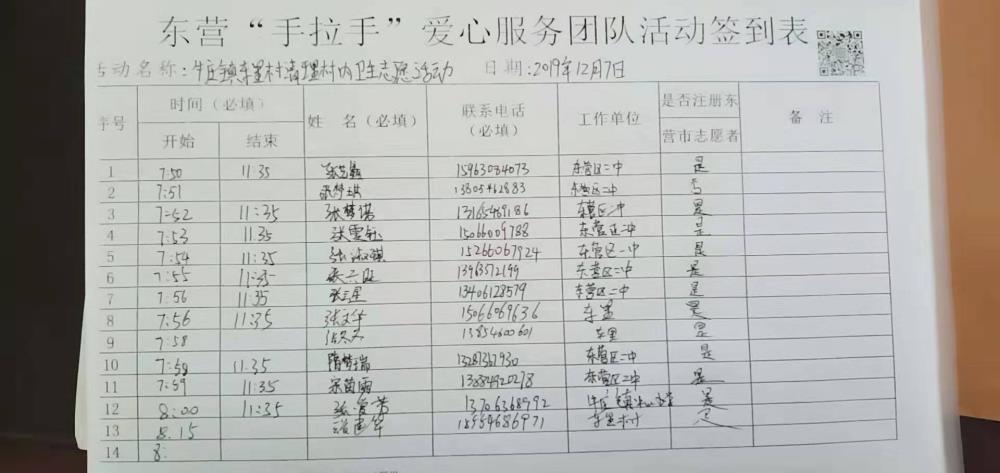 东营“手拉手”爱心服务团队活动签到表
活动名称：牛庄镇东里村清理村内卫生志愿活动 日期：2019年12月7日
序号 时间（必填） 姓 名（必填） 联系电话（必填） 工作单位 是否注册东营市志愿者 备 注
开始 结束
1 7:50 11:35 15963084073 东营区二中 是
2 7:51 张梦琪 13805462883 东营区二中
3 7:52 11:35 张梦诺 13165469186 东营区二中 是
4 7:53 11.35 张雪钰 15066009788 东营区二中 是
5 7:54 11:35 张淑琪 15266067924 东营区一中 是
6 7:55 11:35 13963572199 东营区二中 是
7 7:56 11:35 张三星 13406128579 东营区二中 是
8 7:56 11:35 张文华 15066069636 东里 是
9 7:58 13854600601 东里 是
10 7:58 11.35 隋梦瑞 13287367930 东营区二中 是
11 7:59 11:35 宋茵雨 13884920278 东营区二中 是
12 8:00 11:35 张爱芳 13706368992 牛庄镇 是
13 8.15 15954686971 东里村
14 8: